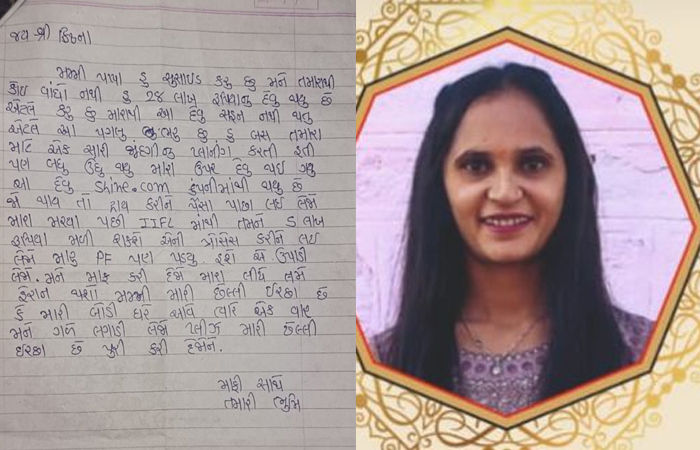 જય શ્રી ક્રિષ્ના
મમ્મી પાપા હુ સુસાઇડ કરુ છુ મને તમારાથી
કોઇ વાંધો નથી હુ 28 લાખ રૂપિયાનુ દેવુ થયુ છે
એટલે કરુ છુ મારાથી આ દેવુ સહન નથી થતુ
એટલે આ પગલુ ભરુ છુ હુ બસ તમારા
માટે એક સારી જીંદગીનુ પ્લાનીંગ કરતી હતી
પણ બધુ ઉંધુ થયુ મારા ઉપર દેવુ થઇ ગયુ
આ દેવુ Shine.com કંપનીમાંથી થયુ છે
જો થાય તો દાવ કરીને પૈસા પાછા લઇ લેજો
મારા મરયા પછી IIFL માંથી તમને 5 લાખ
રૂપિયા મળી શકશે એની પ્રોસેસ કરીને લઇ
લેજો મારુ PF પણ પડયુ હશે એ ઉપાડી
લેજો. મને માફ કરી દેજો મારા લીધે તમે
હેરાન થશો મમ્મી મારી છેલ્લી ઇચ્છા છે
કે મારી બોડી ઘરે આવે ત્યારે એક વાર
મને ગળે લગાડી લેજો પ્લીઝ મારી છેલ્લી
ઇચ્છા છે પુરી કરી દેજો.
માફી સાથે
તમારી ભુમિ